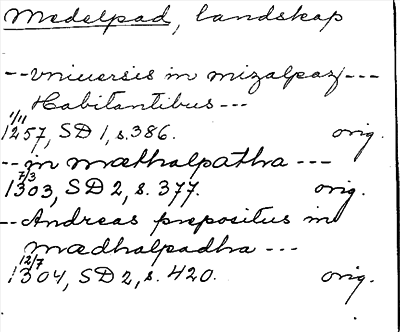 Medelpad, landskap
-- vniuersis in mizalpaz ---
Habitantibus ---
1/11
1257, SD 1, s. 386. orig.
-- in mæthalpatha ---
7/3
1303, SD 2, s. 377. orig.
-- Andreas prepositus in
mædhalpadha ---
12/7
1304, SD 2, s. 420. orig.